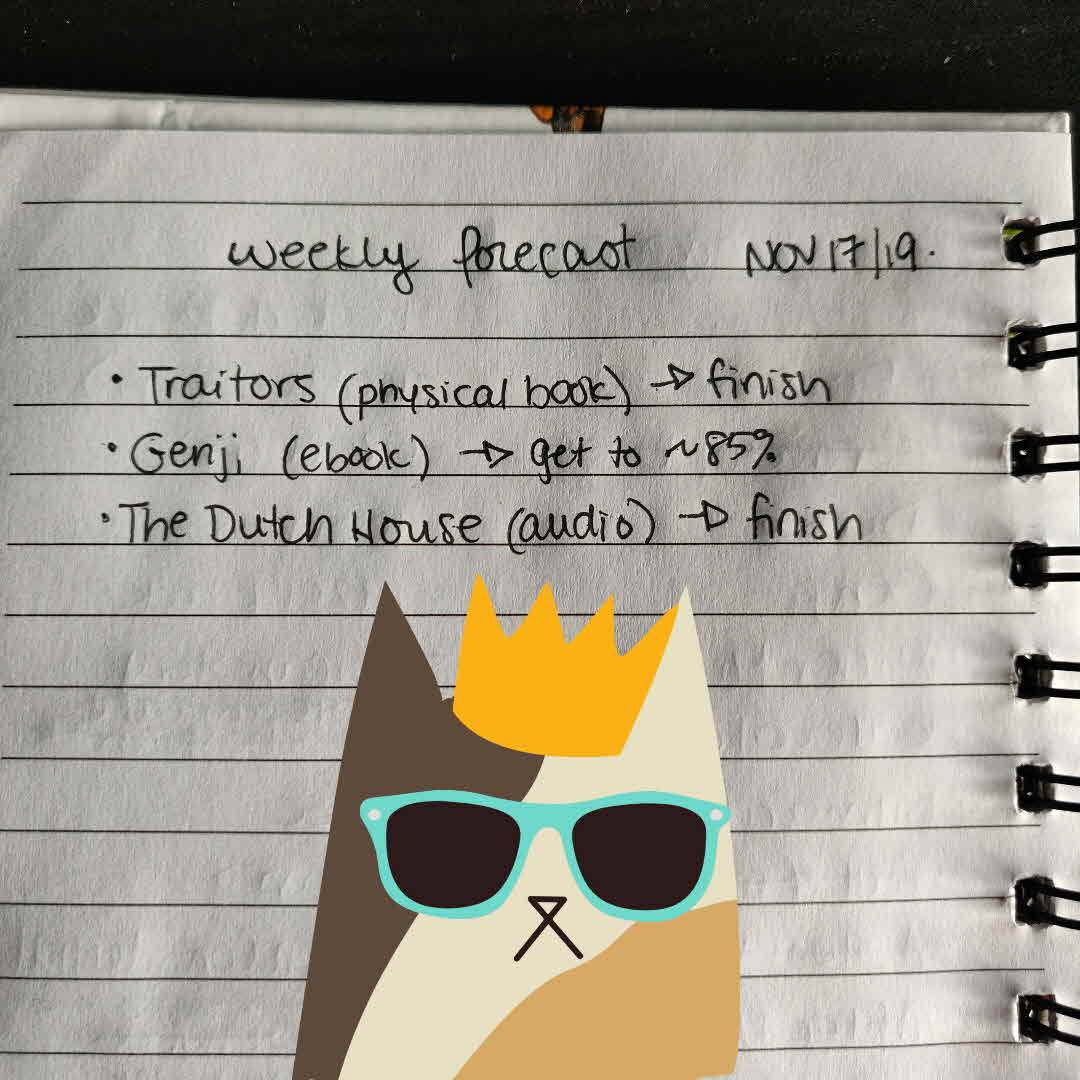 weekly forecast NOV 17/19.
• Traitors (physical book) → finish
• Genji (ebook) → get to ~85%
• The Dutch House (audio) → finish